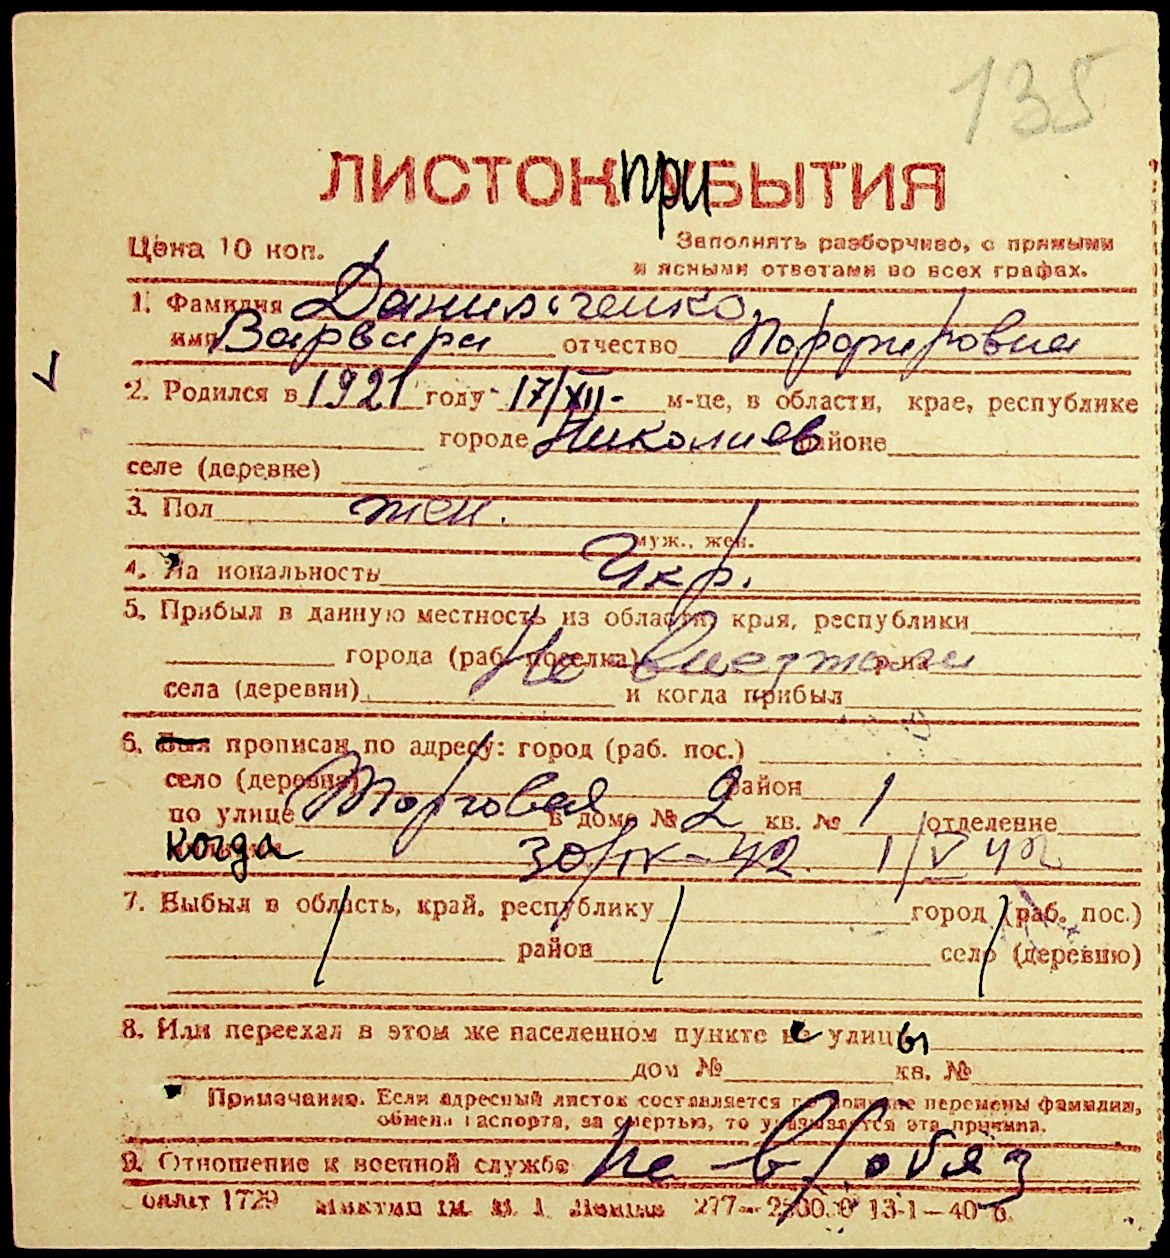 135
ЛИСТОК ПРИБЫТИЯ
Цена 10 коп.
Заполнять разборчиво, с прямыми
и ясными ответами во всех графах.
1. Фамилия Данильченко
имя Варвара отчество Порфировна
2. Родился в 1921 году 17/XII- м-це, в области, крае, республике
городе Николаев районе
селе (деревне)
3. Пол жен.
муж., жен.
4. На иональность Укр.
5. Прибыл в данную местность из области, края, республики
города (раб. поселка) Не виезжали р-на
села (деревни) и когда прибыл
6. Был прописан по адресу: город (раб. пос.)
село (деревня) район
по улице Торговая в доме № 2 кв. № 1 отделение
когда 30/IV-42. 1/V 42
7. Выбыл в область, край, республику город (раб. пос.)
район село (деревню)
8. Или переехал в этом же населенном пункте с улицы
дом № кв. №
Примечание. Если адресный листок составляется по причине перемены фамилии,
обмена паспорта, за смертью, то указывается эта причина.
9. Отношение к военной службе Не в/обяз
облліт 1729 277— 13-1—40 р.